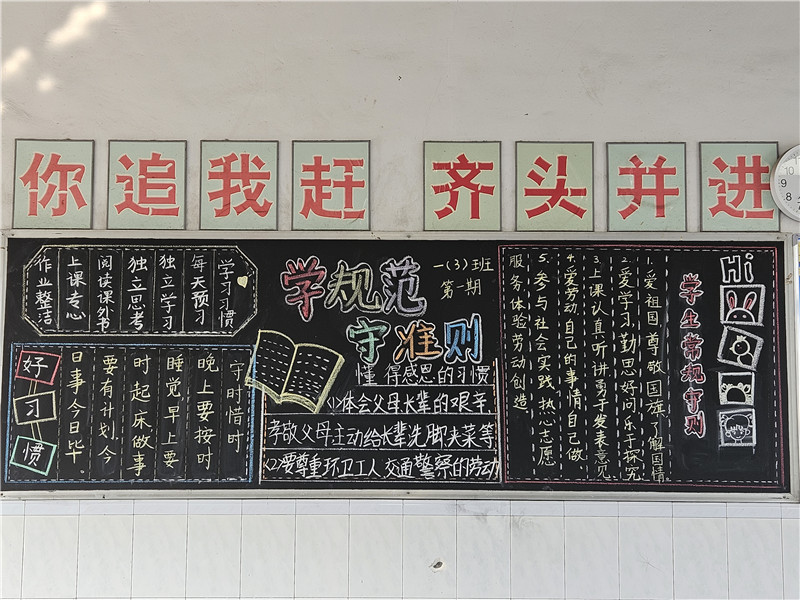 你追我赶 齐头并进
学习习惯
每天预习
独立学习
独立思考
阅读课外书
上课专心
作业整洁
好
习
惯
守时惜时
晚上要按时
睡觉早上要
时起床做事
要有计划今
日事今日毕.
学规范
守准则
一(3)班
第一期
懂得感恩的习惯
<1>体会父母长辈的艰辛
孝敬父母主动给长辈洗脚夹菜等
<2>要尊重环卫工人交通警察的劳动
Hi
学生常规守则
1.爱祖国尊敬国旗了解国情
2.爱学习勤思好问乐于探究
3.上课认真听讲勇于发表意见
4.爱劳动自己的事情自己做
5.参与社会实践热心志愿
服务体验劳动创造.
10
9
8
7